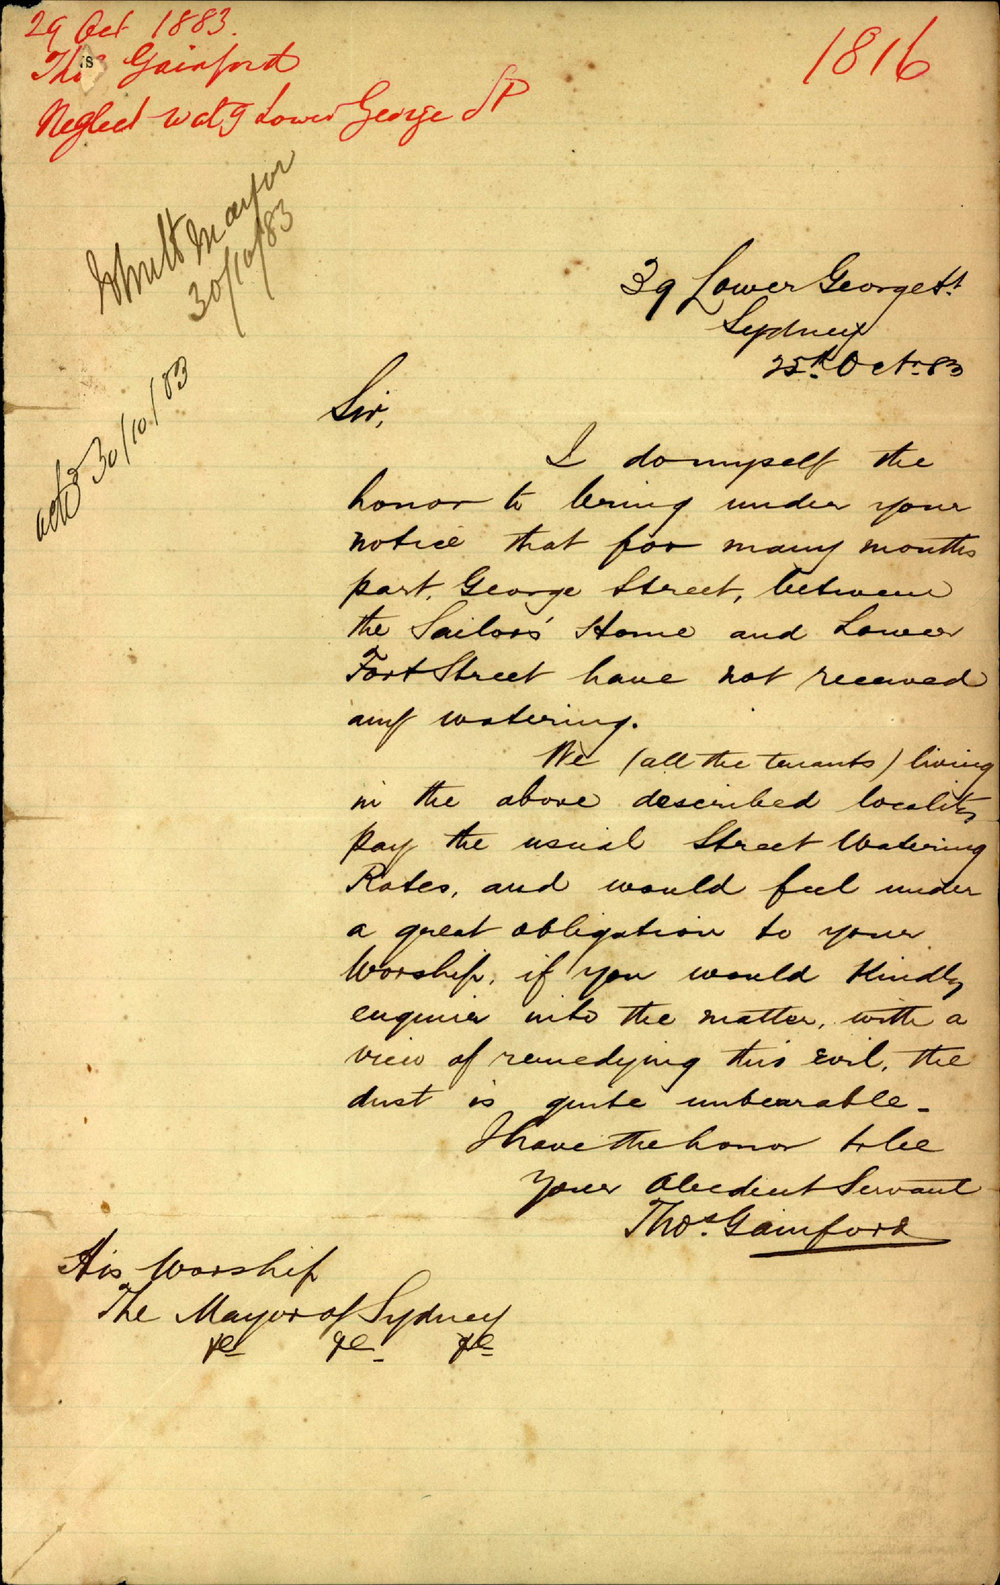 29 Oct 1883.
1816
Thos Gainford
Neglect watg Lower George St
Mayor
30/10/83
ackd 30/10/83
39 Lower George St.
Sydney
25th. Octr. 83
Sir,
I do myself the
honor to bring under your
notice that for many months
past, George Street, between
the Sailors' Home and Lower
Fort Street have not received
any watering.
We (all the tenants) living
in the above described locality
pay the usual Street Watering
Rates, and would feel under
a great obligation to your
Worship, if you would kindly
enquire into the matter, with a
view of remedying this evil, the
dust is quite unbearable-
I have the honor to be
Your Obedient Servant
Thos. Gainford
His Worship
The Mayor of Sydney
&c &c &c